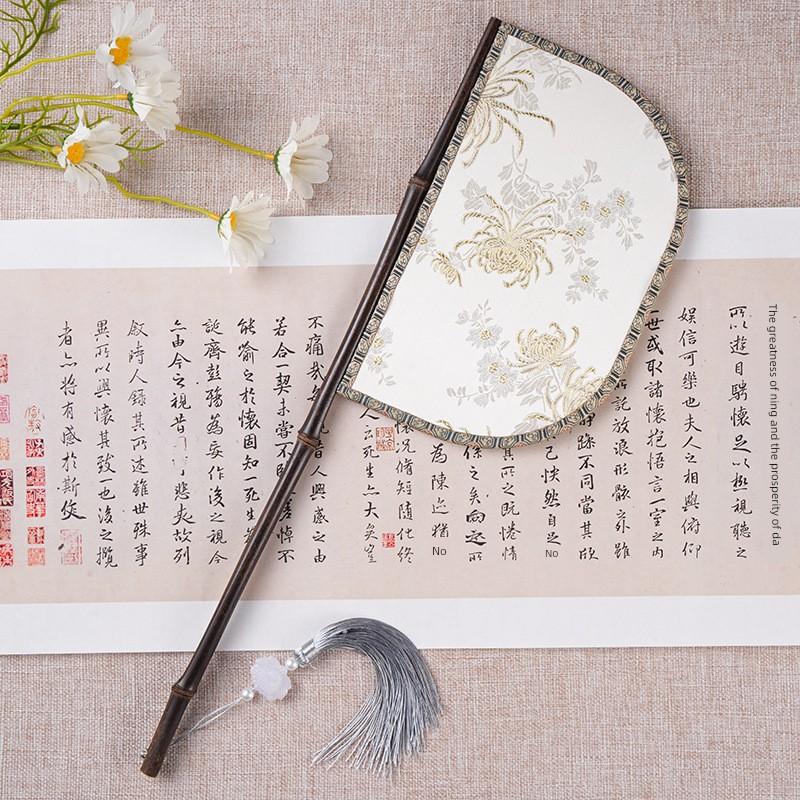 所以遊目騁懷足以極視聽之
娛信可樂也夫人之相與俯仰
一世或取諸懷抱悟言一室之內
託放浪形骸之外雖
躁不同當其欣
己怏然自足
No
其所之既惓情
係之矣向之所
為陳迹猶
No
況脩短隨化終
人云死生亦大矣豈
不痛哉每人興感之由
若合一契未嘗不悼不
能喻之於懷固知一死生
誕齊彭殤為妄作後之視今
亦由今之視昔悲夫故列
敘時人錄其所述雖世殊事
異所以興懷其致一也後之攬
者亦將有感於斯文
The greatness of ning and the prosperity of da